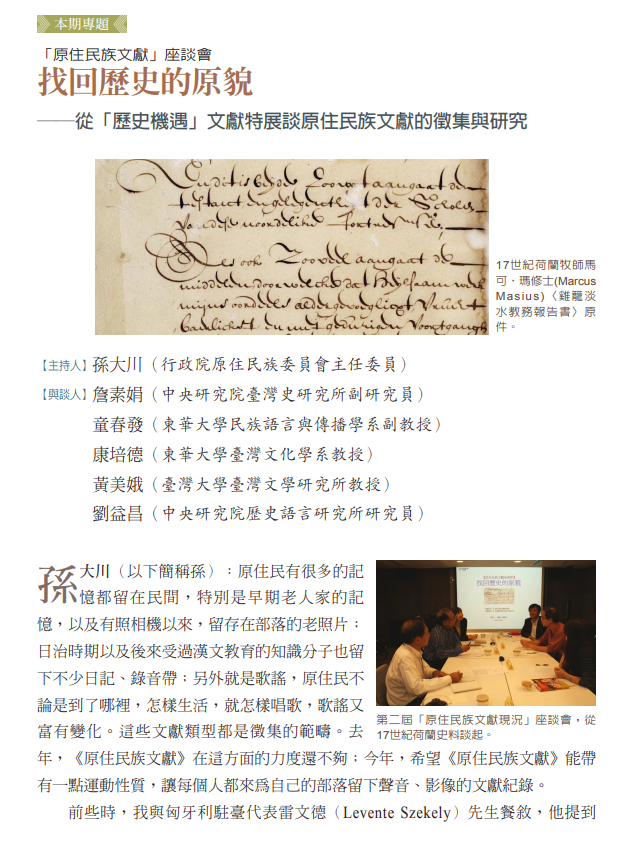 本期專題
「原住民族文獻」座談會
找回歷史的原貌
——從「歷史機遇」文獻特展談原住民族文獻的徵集與研究
17世紀荷蘭牧師馬
可．瑪修士(Marcus
Masius)〈雞籠淡
水教務報告書〉原
件。
【主持人】孫大川（行政院原住民族委員會主任委員）
【與談人】詹素娟（中央研究院臺灣史研究所副研究員）
童春發（東華大學民族語言與傳播學系副教授）
康培德（東華大學臺灣文化學系教授）
黃美娥（臺灣大學臺灣文學研究所教授）
劉益昌（中央研究院歷史語言研究所研究員）
孫大川（以下簡稱孫）：原住民有很多的記
憶都留在民間，特別是早期老人家的記
憶，以及有照相機以來，留存在部落的老照片；
日治時期以及後來受過漢文教育的知識分子也留
下不少日記、錄音帶；另外就是歌謠，原住民不
論是到了哪裡，怎樣生活，就怎樣唱歌，歌謠又
富有變化。這些文獻類型都是徵集的範疇。去
年，《原住民族文獻》在這方面的力度還不夠；今年，希望《原住民族文獻》能帶
有一點運動性質，讓每個人都來為自己的部落留下聲音、影像的文獻紀錄。
找回歷史的原貌
第二屆「原住民族文獻現況」座談會，從
17世紀荷蘭史料談起。
前些時，我與匈牙利駐臺代表雷文德（Levente Szekely）先生餐敘，他提到